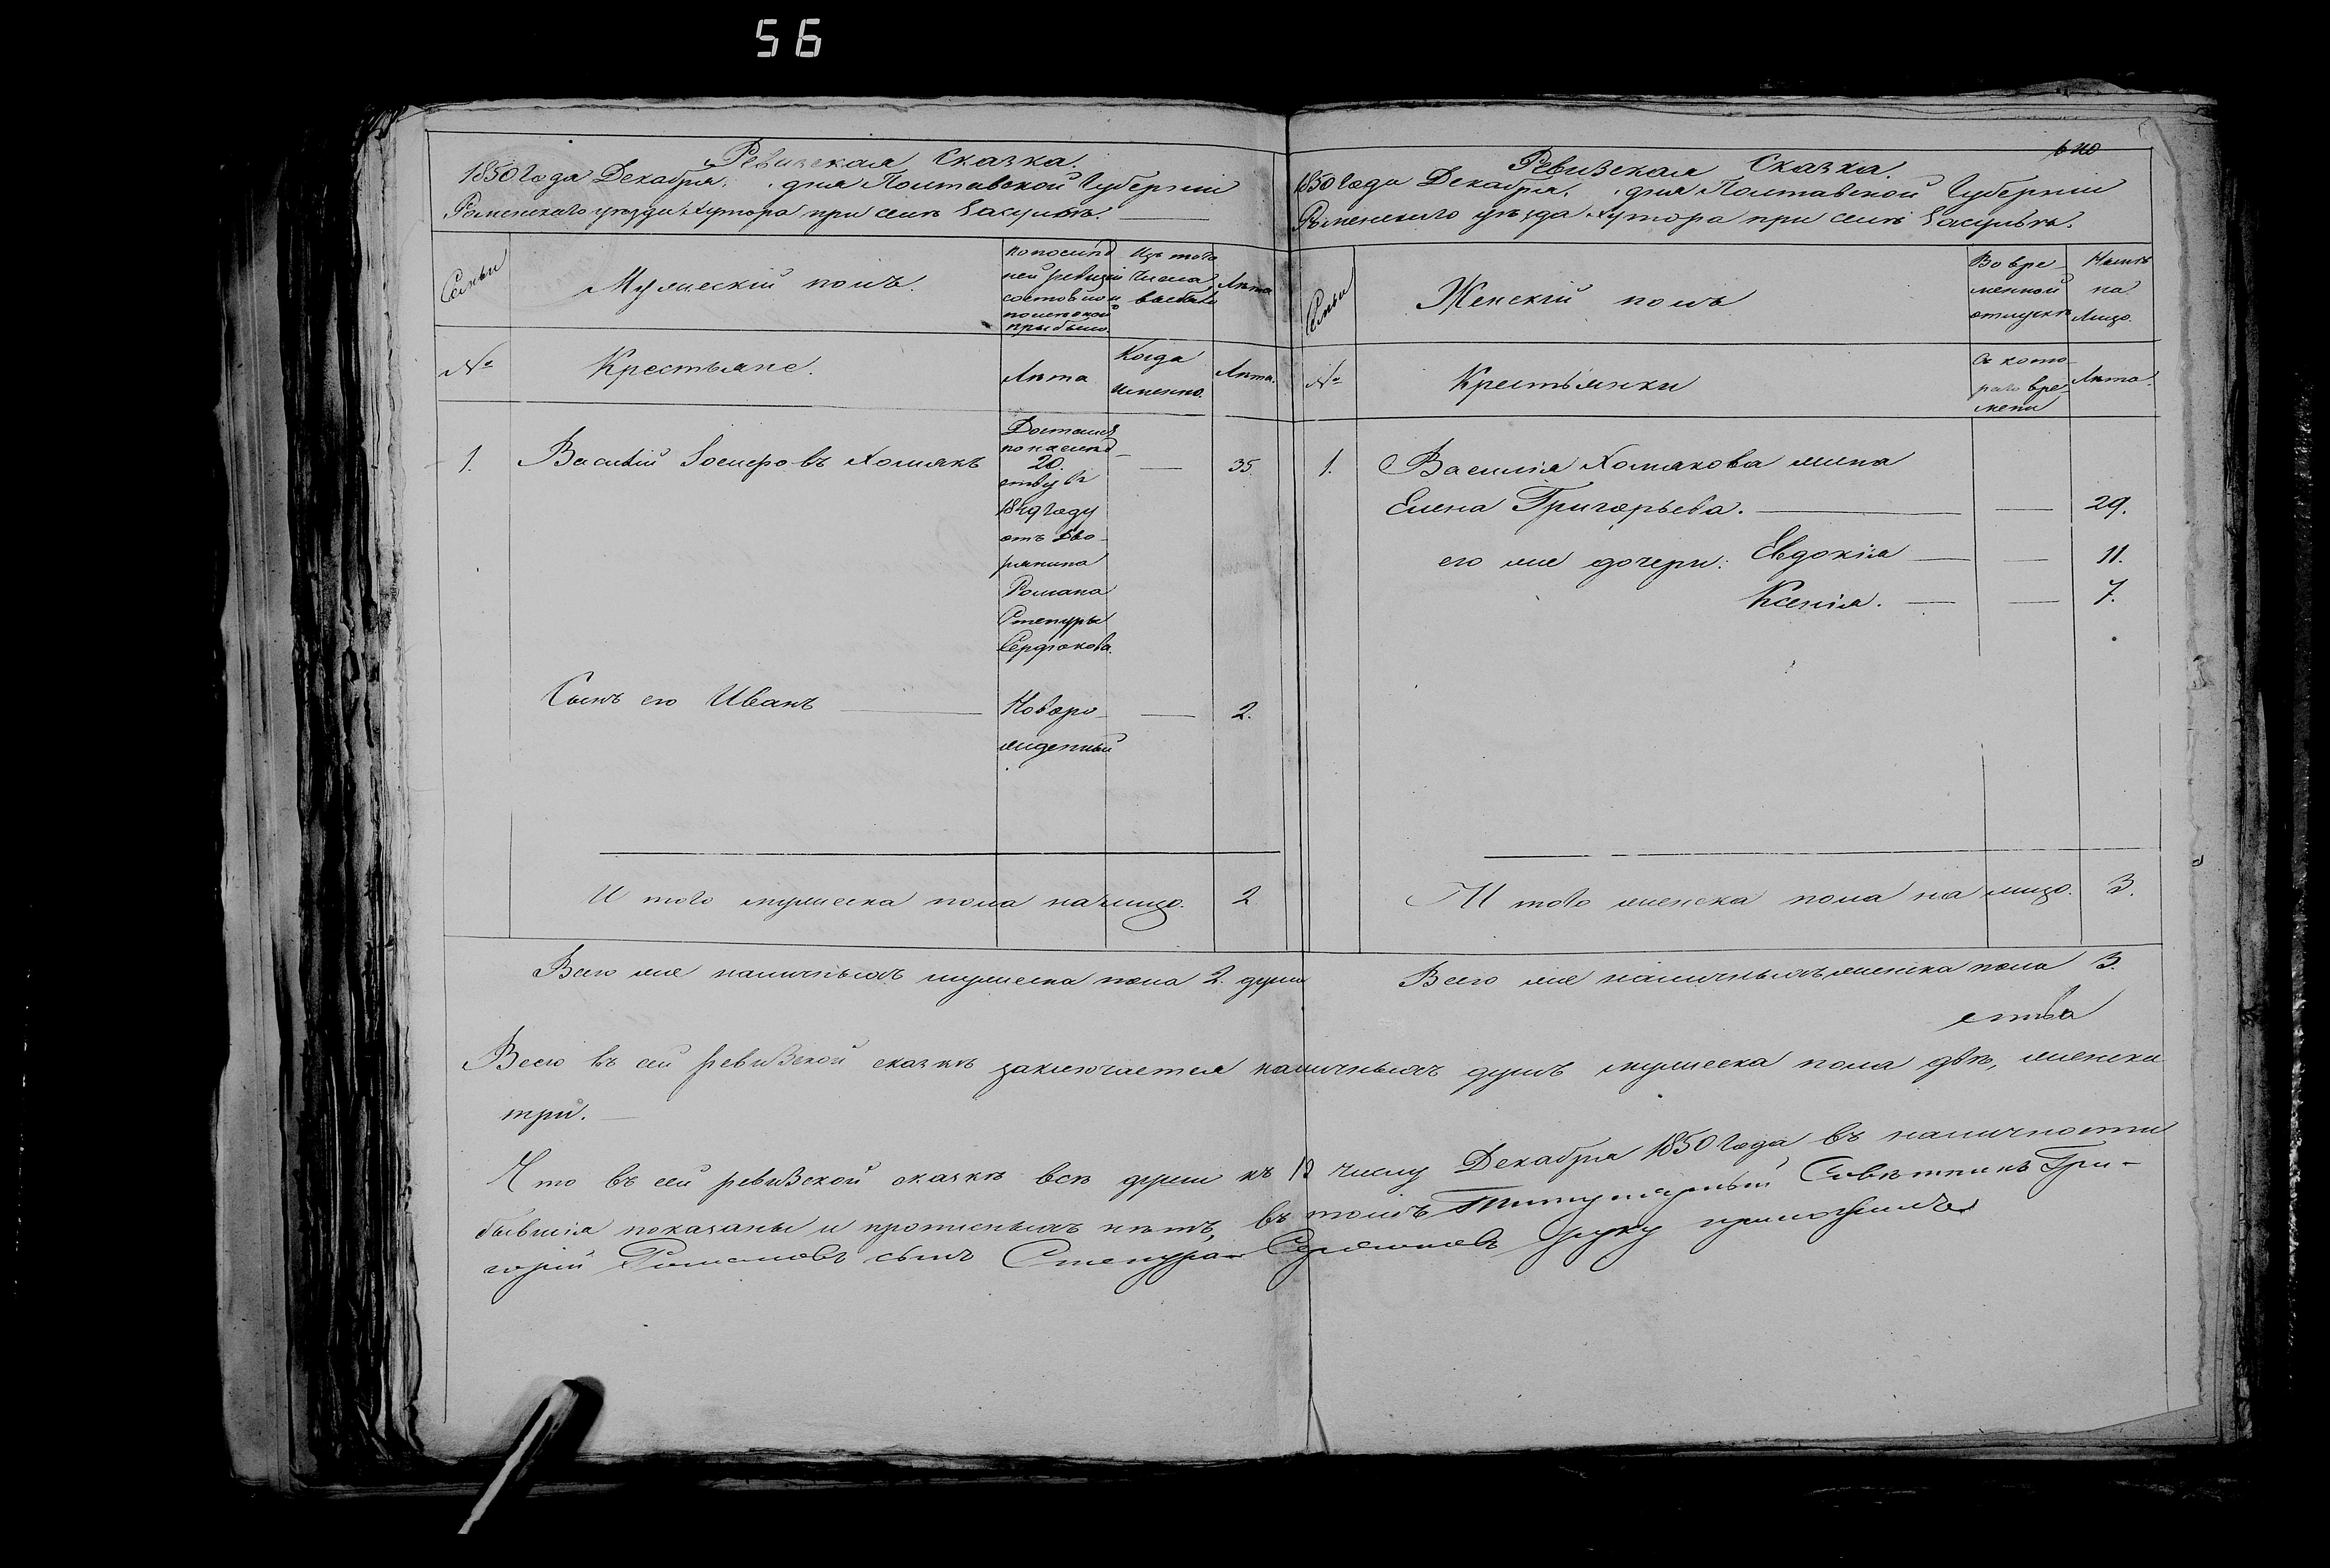 56
Ревизская Сказка.
1850 Года Декабря. дня Полтавской Губерніи
Роменского уезда Хутора при селѣ Засульѣ.
Семьи
Мужескій полъ.
По послѣд
ней ревизіи
состояло и
после оной
прибыло.
Изъ того
числа
выбыло
Лѣта
№
Крестьяне.
Лѣта
Когда
именно.
Лѣта.
1.
Василій Іосифовъ Хомякъ
Достался
по наслѣд
20.
ству въ
1849 году
отъ Дво-
рянина
Романа
Стенуры
Сердюкова.
—
35.
Сынъ его Иванъ
Новоро-
жденный
—
2.
И того мужеска пола на лицо. 2
Всего же наличныхъ мужеска пола 2. души
640
Ревизская Сказка.
1850 Года Декабря. дня Полтавской Губерніи
Роменского уѣзда Хутора при селѣ Засульѣ.
Семьи
Женскій полъ
Во вре-
менной
отлучкѣ
Налицо
на
Лицо.
№
Крестьянки
Съ кото-
раго вре-
мени
Лѣта.
1.
Василія Хомякова жена
Елена Григорьева. — — 29.
его же дочери: Евдокія — — 11.
Ксенія. — — 7.
И того женска пола на лицо. 3.
Всего же наличныхъ женска пола 3.
Всего въ сей ревизской сказкѣ заключается наличныхъ душъ мужеска пола двѣ, женска
три. —
Что въ сей ревизской сказкѣ всѣ души къ числу Декабря 1850 Года въ наличности
бывшія показаны и прописныхъ нѣтъ, въ томъ Титулярный Совѣтникъ Гри-
горій Романовъ сынъ Стенура Сердюковъ руку приложилъ